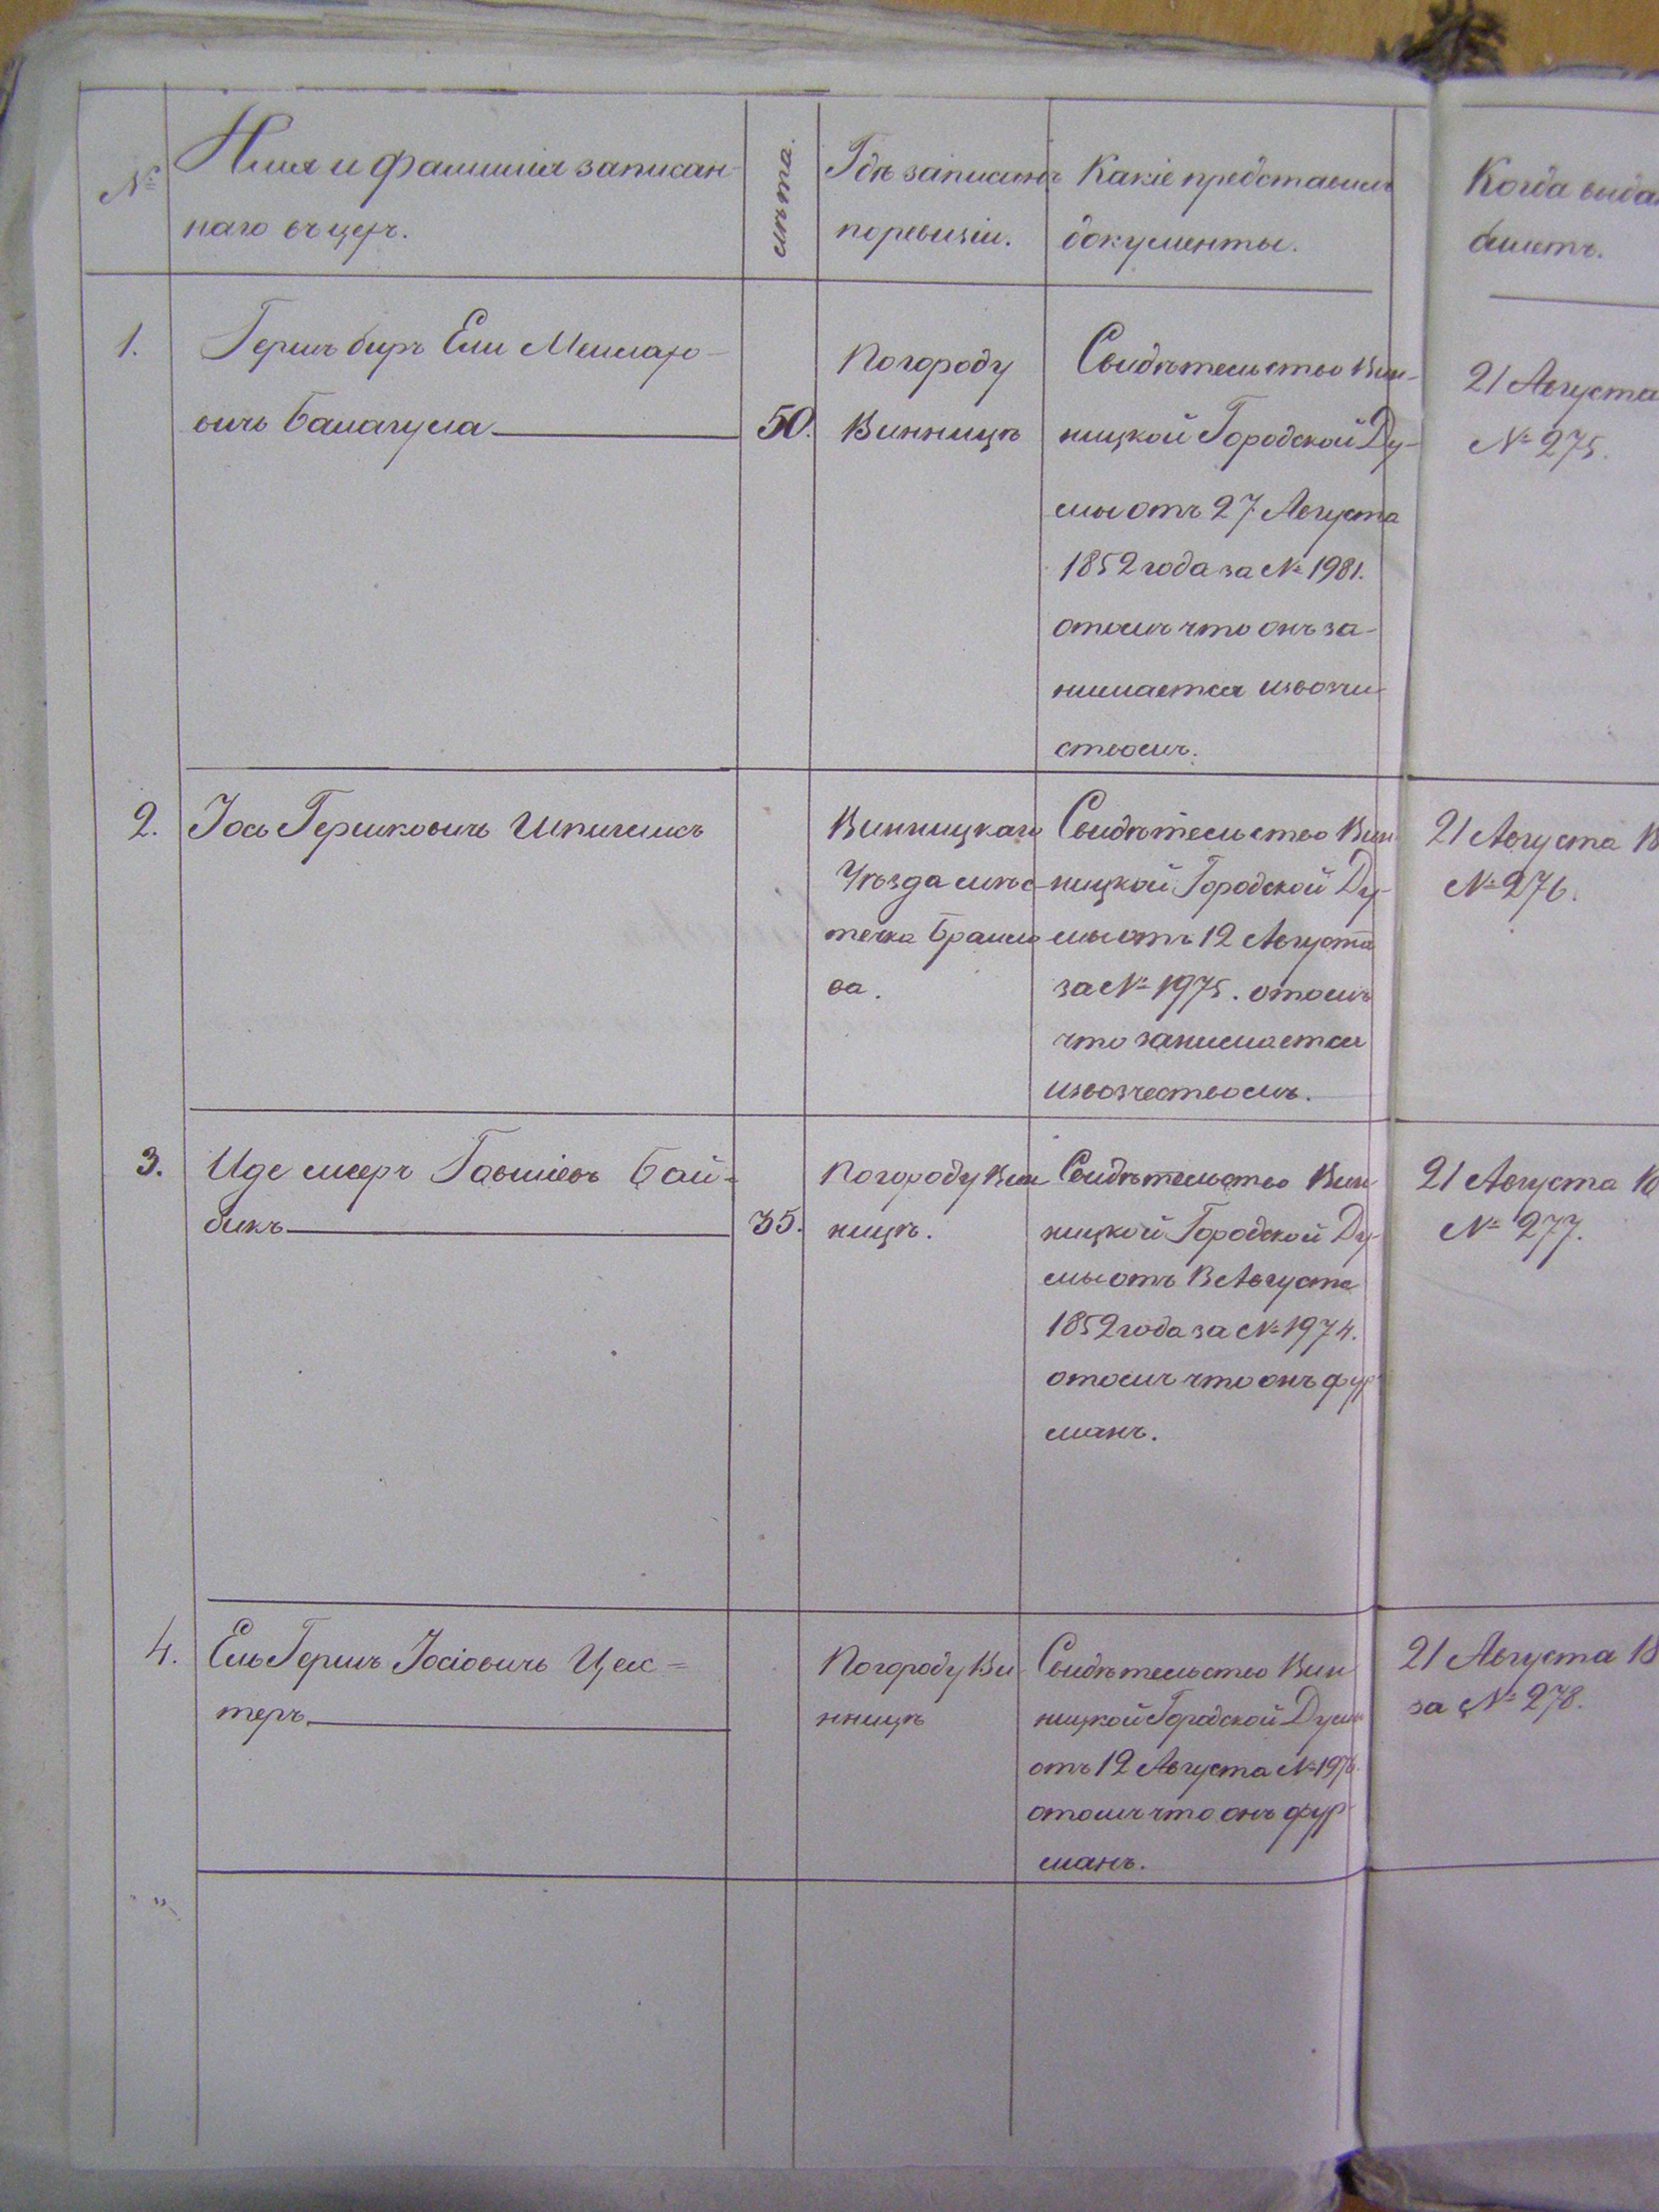 №
Имя и фамилія записан-
наго въ цех.
лѣта.
Гдѣ записанъ
по ревизіи.
Какіе представилъ
документы.
Когда выда
билетъ.
1.
Гершъ беръ Ели
вичъ Балагула
50.
По городу
Винницѣ
Свидѣтельство Вин-
ницкой Городской Ду-
мы отъ 27 Августа
1852 года за № 1981.
отомъ что онъ за-
нимается извозчи-
ствомъ.
21 Августа
№ 275.
2.
Іось Гершковичъ
Винницкаго
Уѣзда мѣс-
течка Браило
ва.
Свидѣтельство Вин
ницкой Городской Ду-
мы отъ 12 Августа
за № 1975. отомъ
что занимается
извозчествомъ.
21 Августа 18
№ 276.
3.
Иде меръ Бай=
бикъ
35.
По городу Вин
ницѣ.
Свидѣтельство Вин
ницкой Городской Ду-
мы отъ Августа
1852 года за № 1974.
отомъ что онъ фур
манъ.
21 Августа 18
№ 277.
4.
Ель Гершъ Іосіовичъ Цем=
теръ
По городу Ви
нницѣ
Свидѣтельство Вин
ницкой Городской Думы
отъ 12 Августа № 1976.
отомъ что онъ фур-
манъ.
21 Августа 18
за № 278.